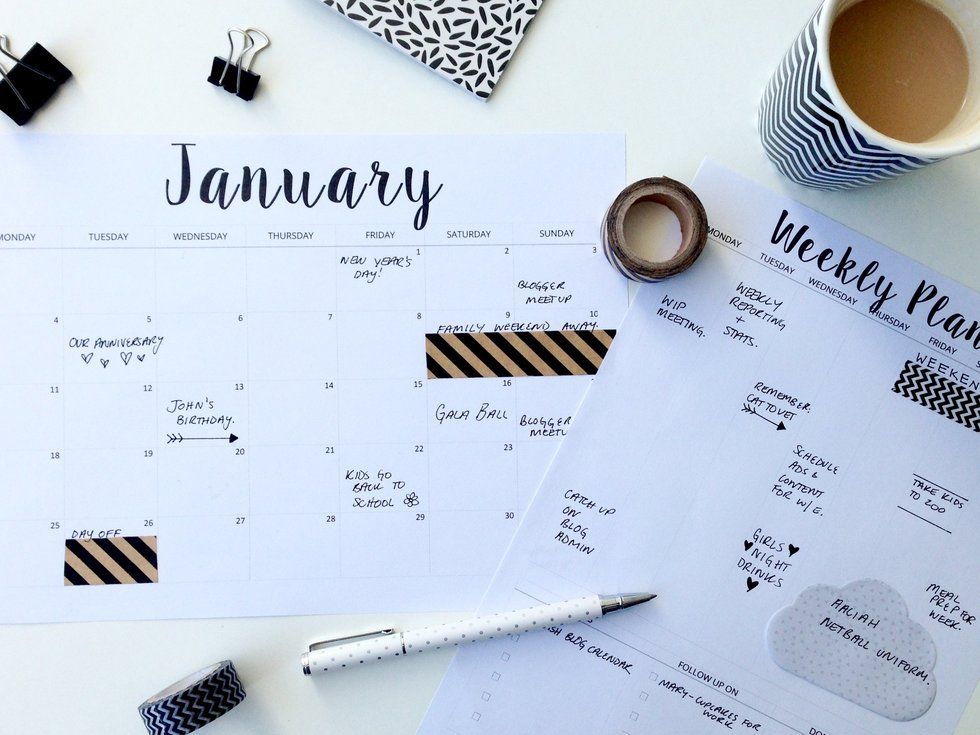 January
MONDAY TUESDAY WEDNESDAY THURSDAY FRIDAY SATURDAY SUNDAY
1 2 3
NEW YEAR'S
DAY!
BLOGGER
MEETUP
4 5 6 7 8 9 10
OUR ANNIVERSARY
FAMILY WEEKEND AWAY.
11 12 13 14 15 16
JOHN'S
BIRTHDAY.
GALA BALL
BLOGGER
MEETU
18 19 20 21 22 23
KIDS GO
BACK TO
SCHOOL
25 26 27 28 29 30
DAY OFF
Weekly Plan
MONDAY TUESDAY WEDNESDAY THURSDAY FRIDAY S
WIP
MEETING.
WEEKLY
REPORTING
+
STATS.
WEEKEN
REMEMBER.
CAT TO VET
SCHEDULE
ADS &
CONTENT
FOR W/E.
TAKE KIDS
TO ZOO
CATCH UP
ON
BLOG
ADMIN
GIRLS
NIGHT
DRINKS
MEAL
PREP FOR
WEEK.
AALIAH
NETBALL UNIFORM.
SH BLOG CALENDAR
FOLLOW UP ON
MARY-CUPCAKES FOR
WORK
DO